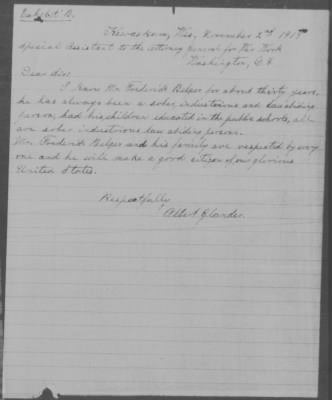 Exhibit B.
Kewaskum, Wis, November 2nd 1917
Special assistant to the attorney General for War Work
Washington, D.C.
Dear Sir:
I know Mr. Frederick Belger for about thirty years.
he has always been a sober, industrious and law abiding
person, had his children educated in the public schools, all
are sober industrious law abiding persons.
Mr. Frederick Belger and his family are respected by every
one and he will make a good citizen of our glorious
United States.
Respectfully
Albert Glander.